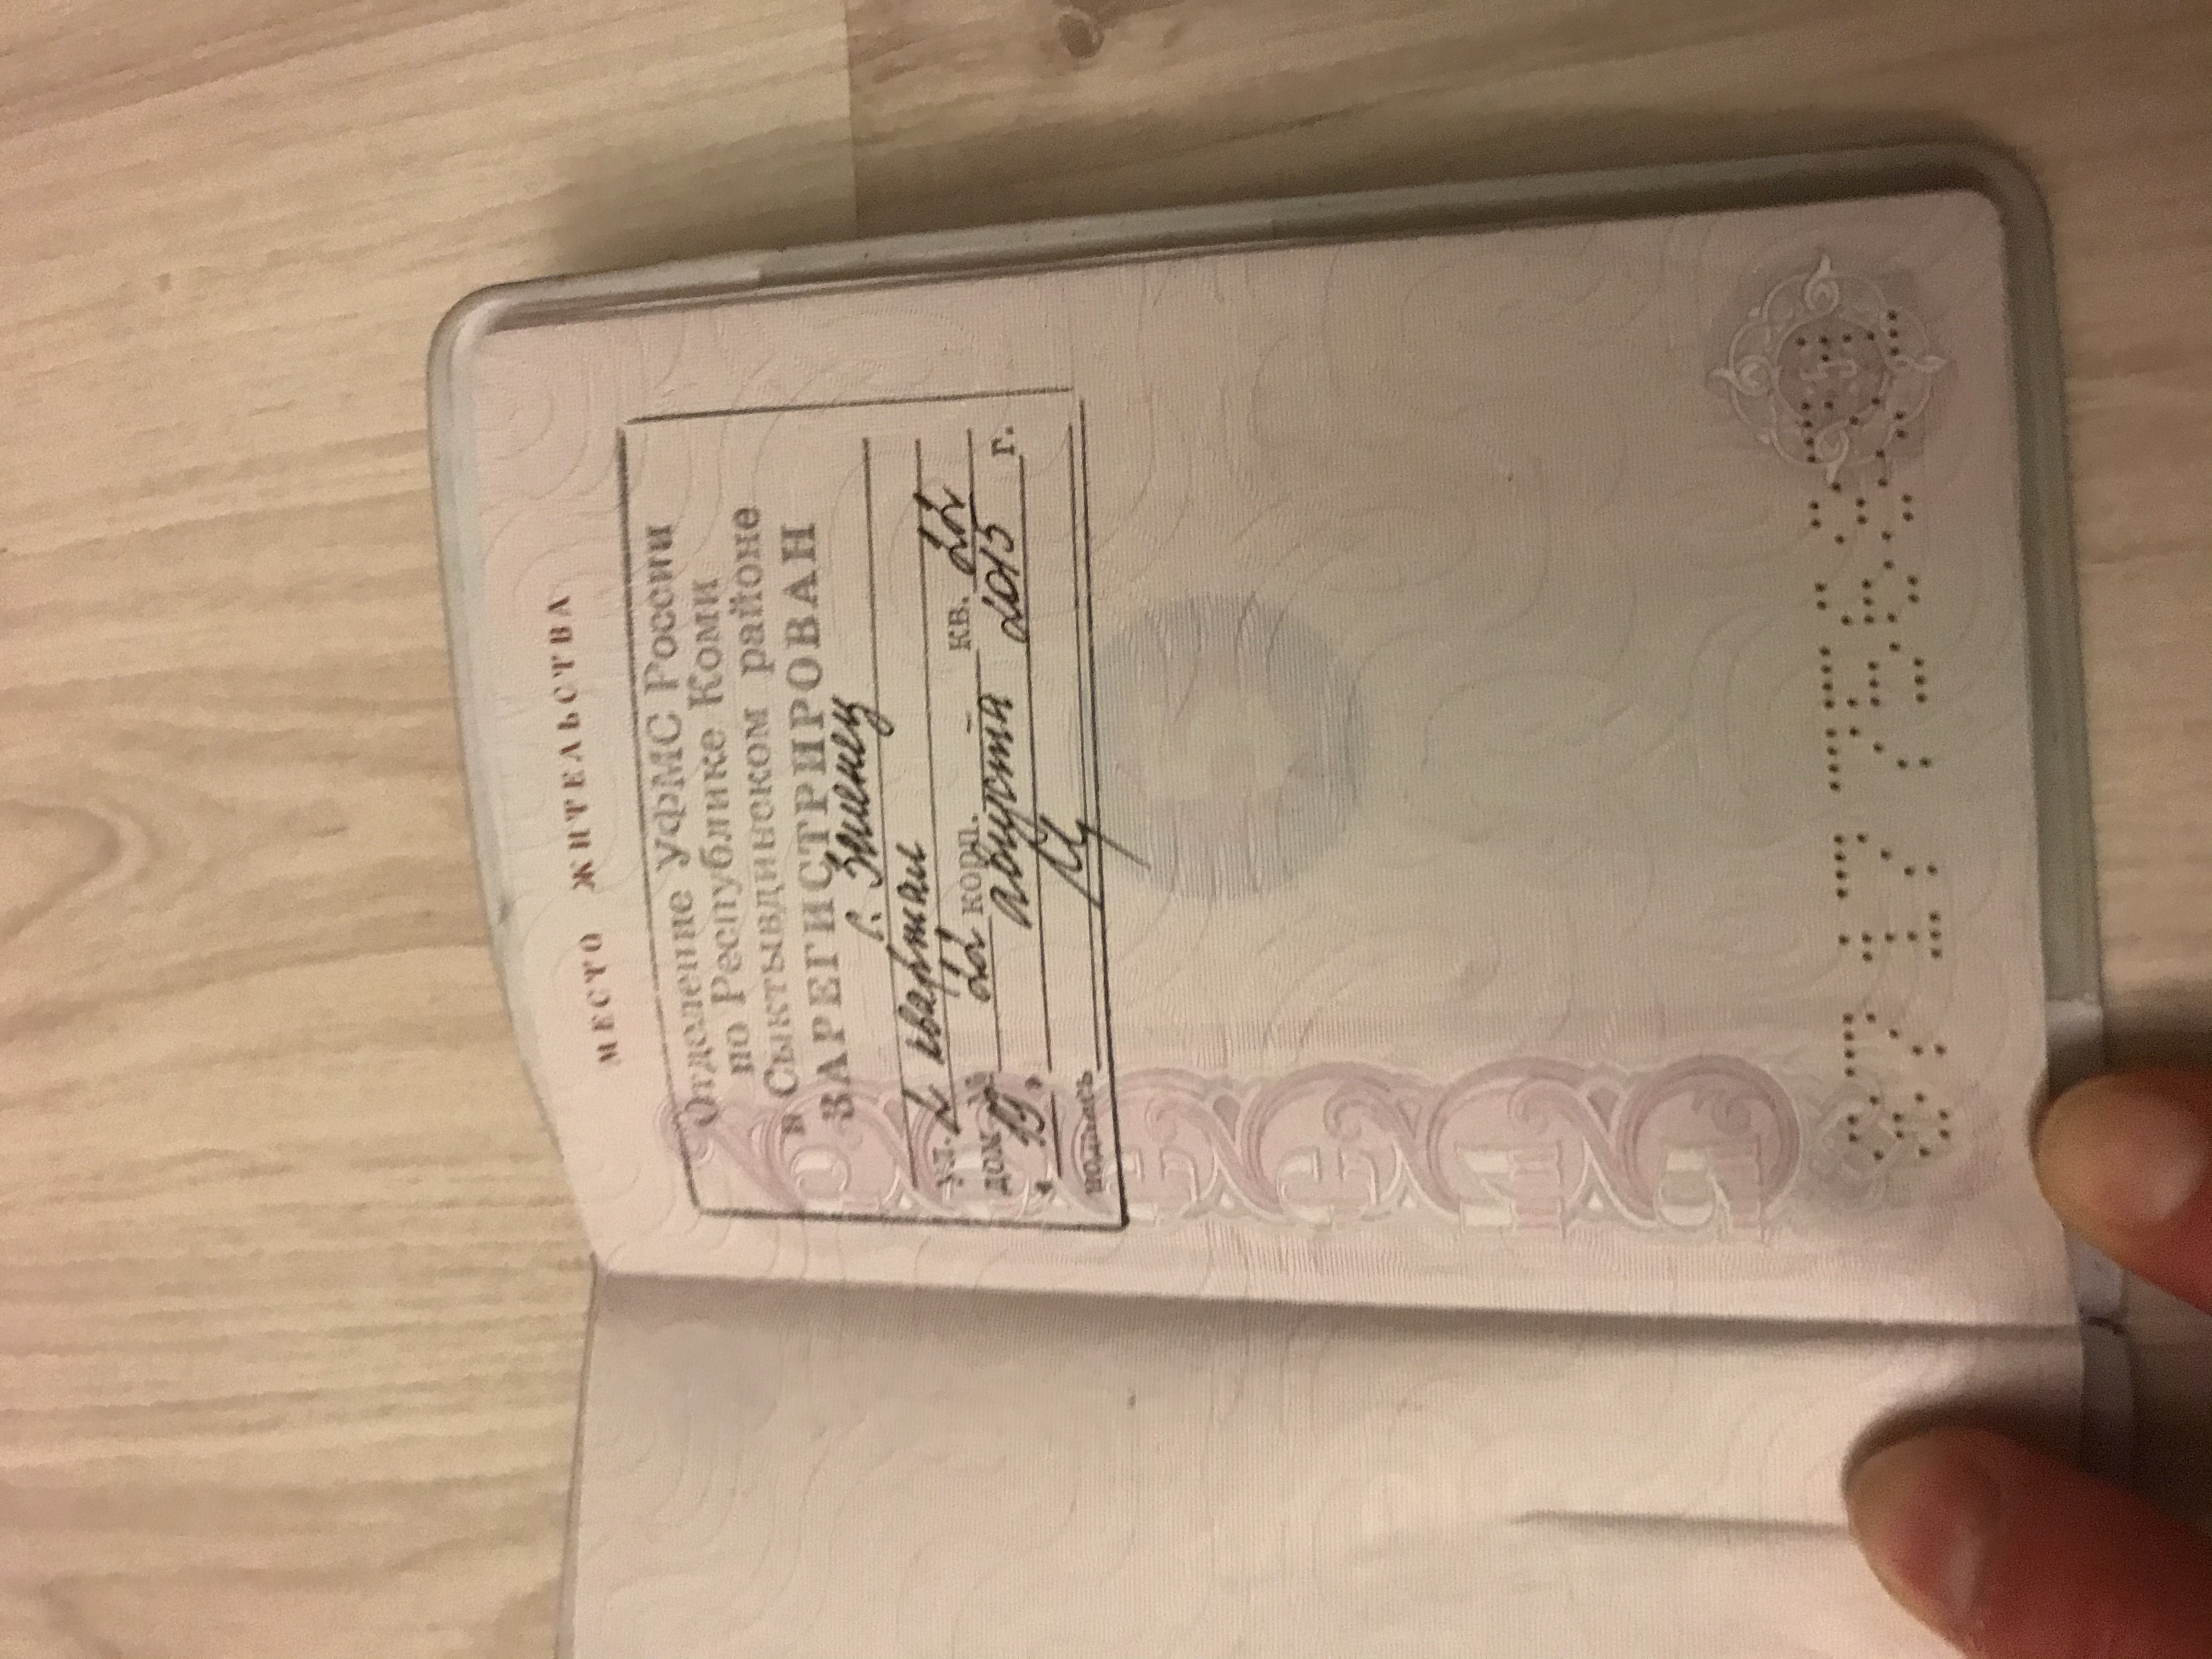 МЕСТО ЖИТЕЛЬСТВА
Отделение УФМС России
по Республике Коми
в Сыктывдинском районе
ЗАРЕГИСТРИРОВАН
с. Зеленец
ул. 2 квартал
дом № 22 корп. – кв. 22
" 19 " августа 2015 г.
подпись
8717 756